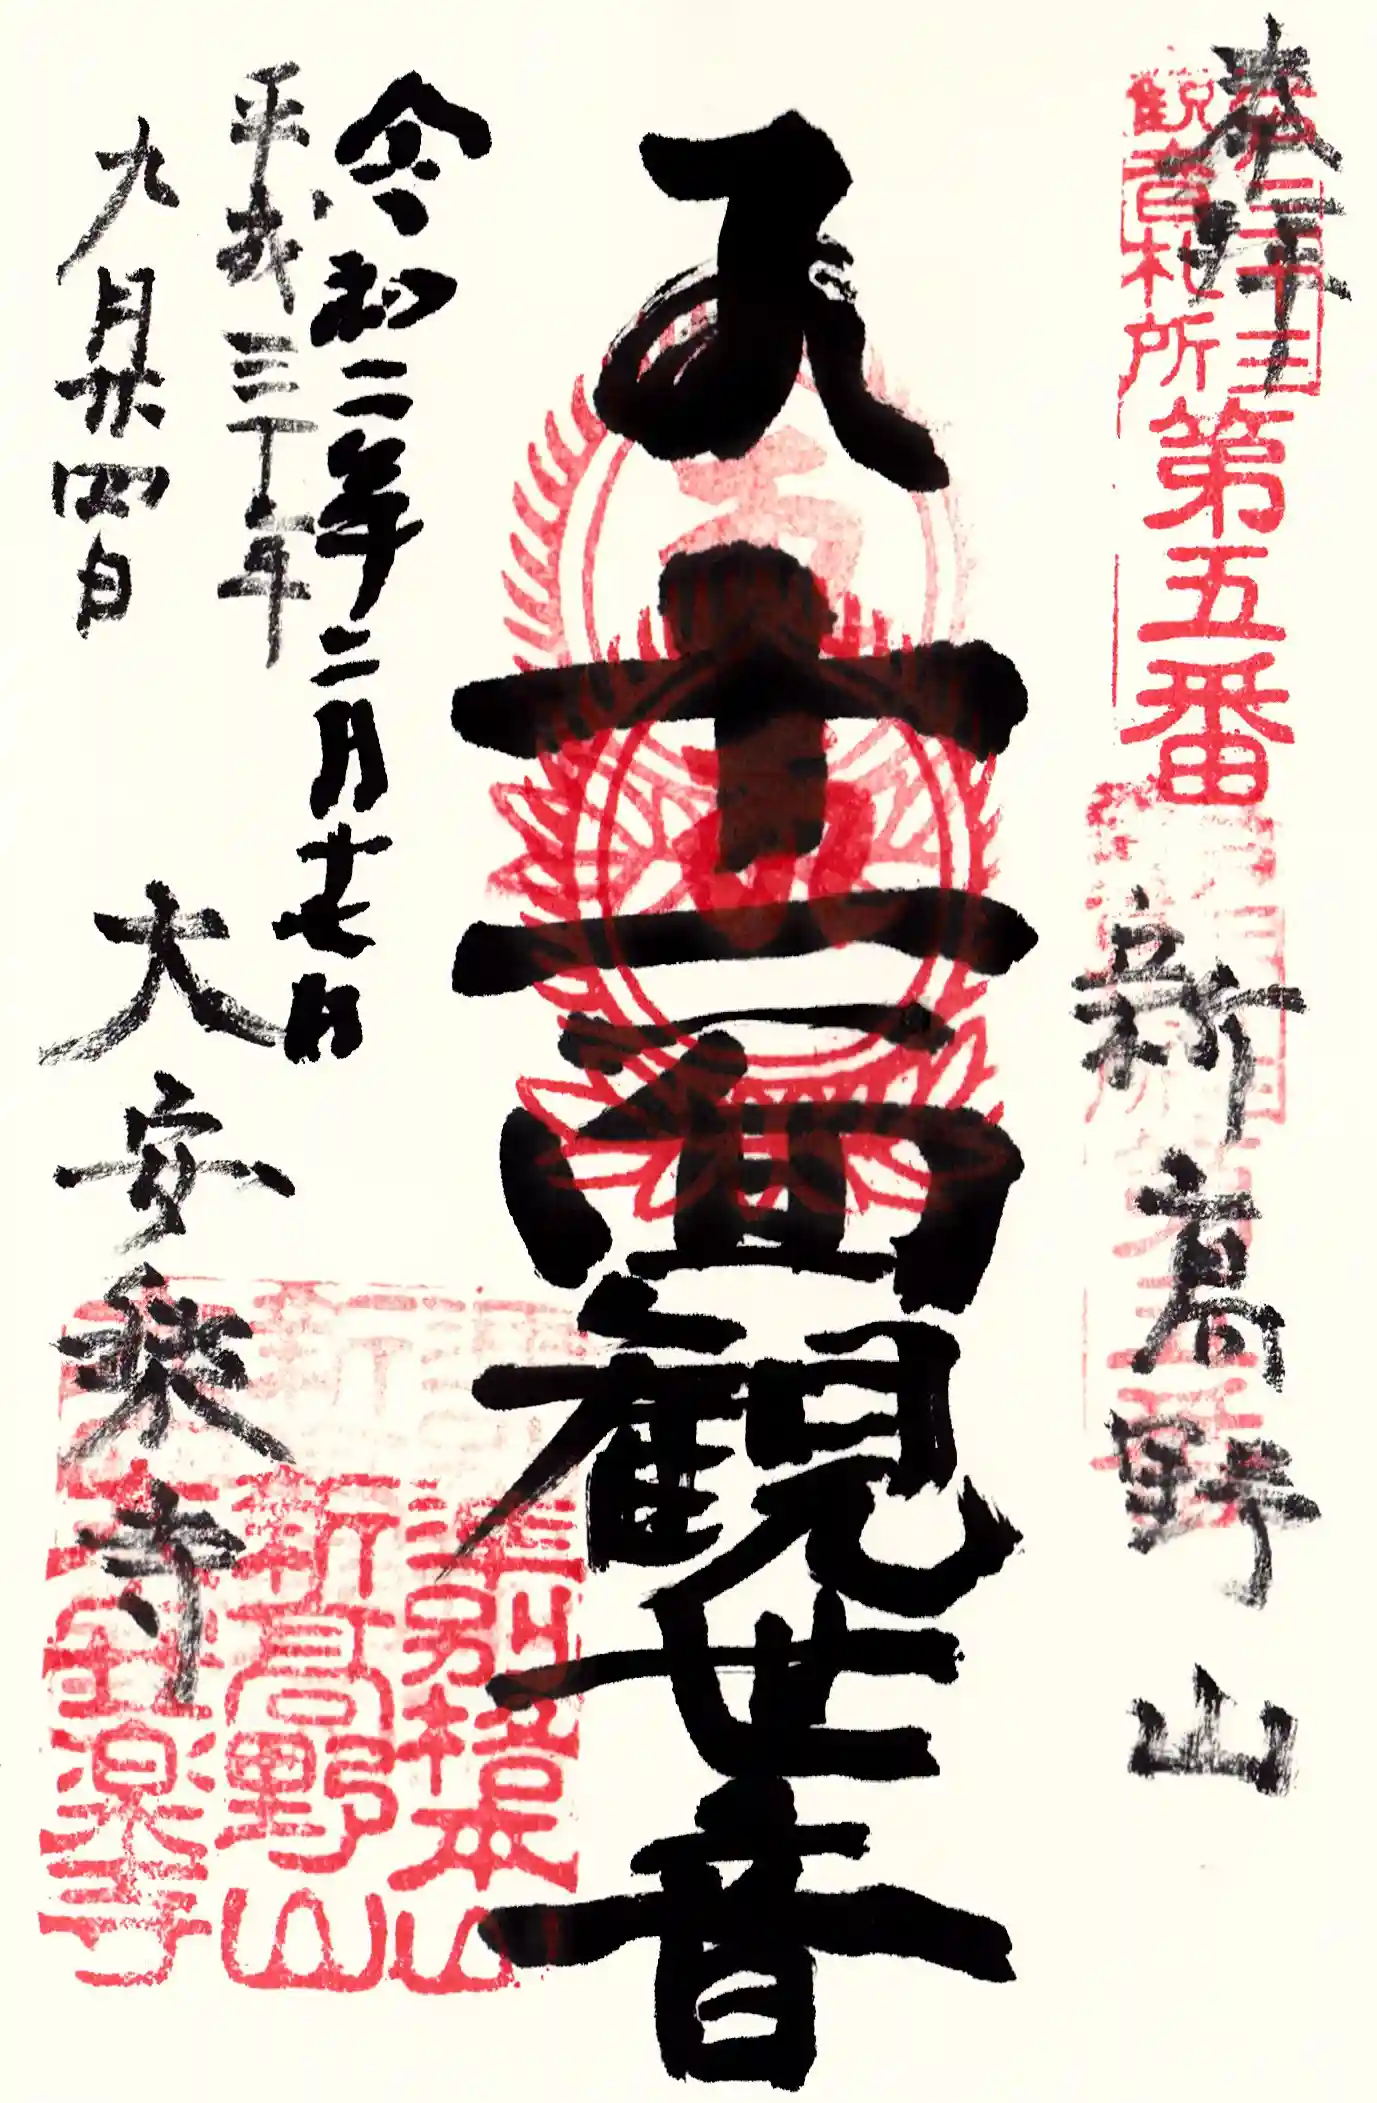 奉拝
三十三
観音札所
第五番
新高野山
十一面観世音
令和二年二月廿七日
平成三十年
九月廿四日
大安楽寺
準別格本山
新高野山
大安楽寺